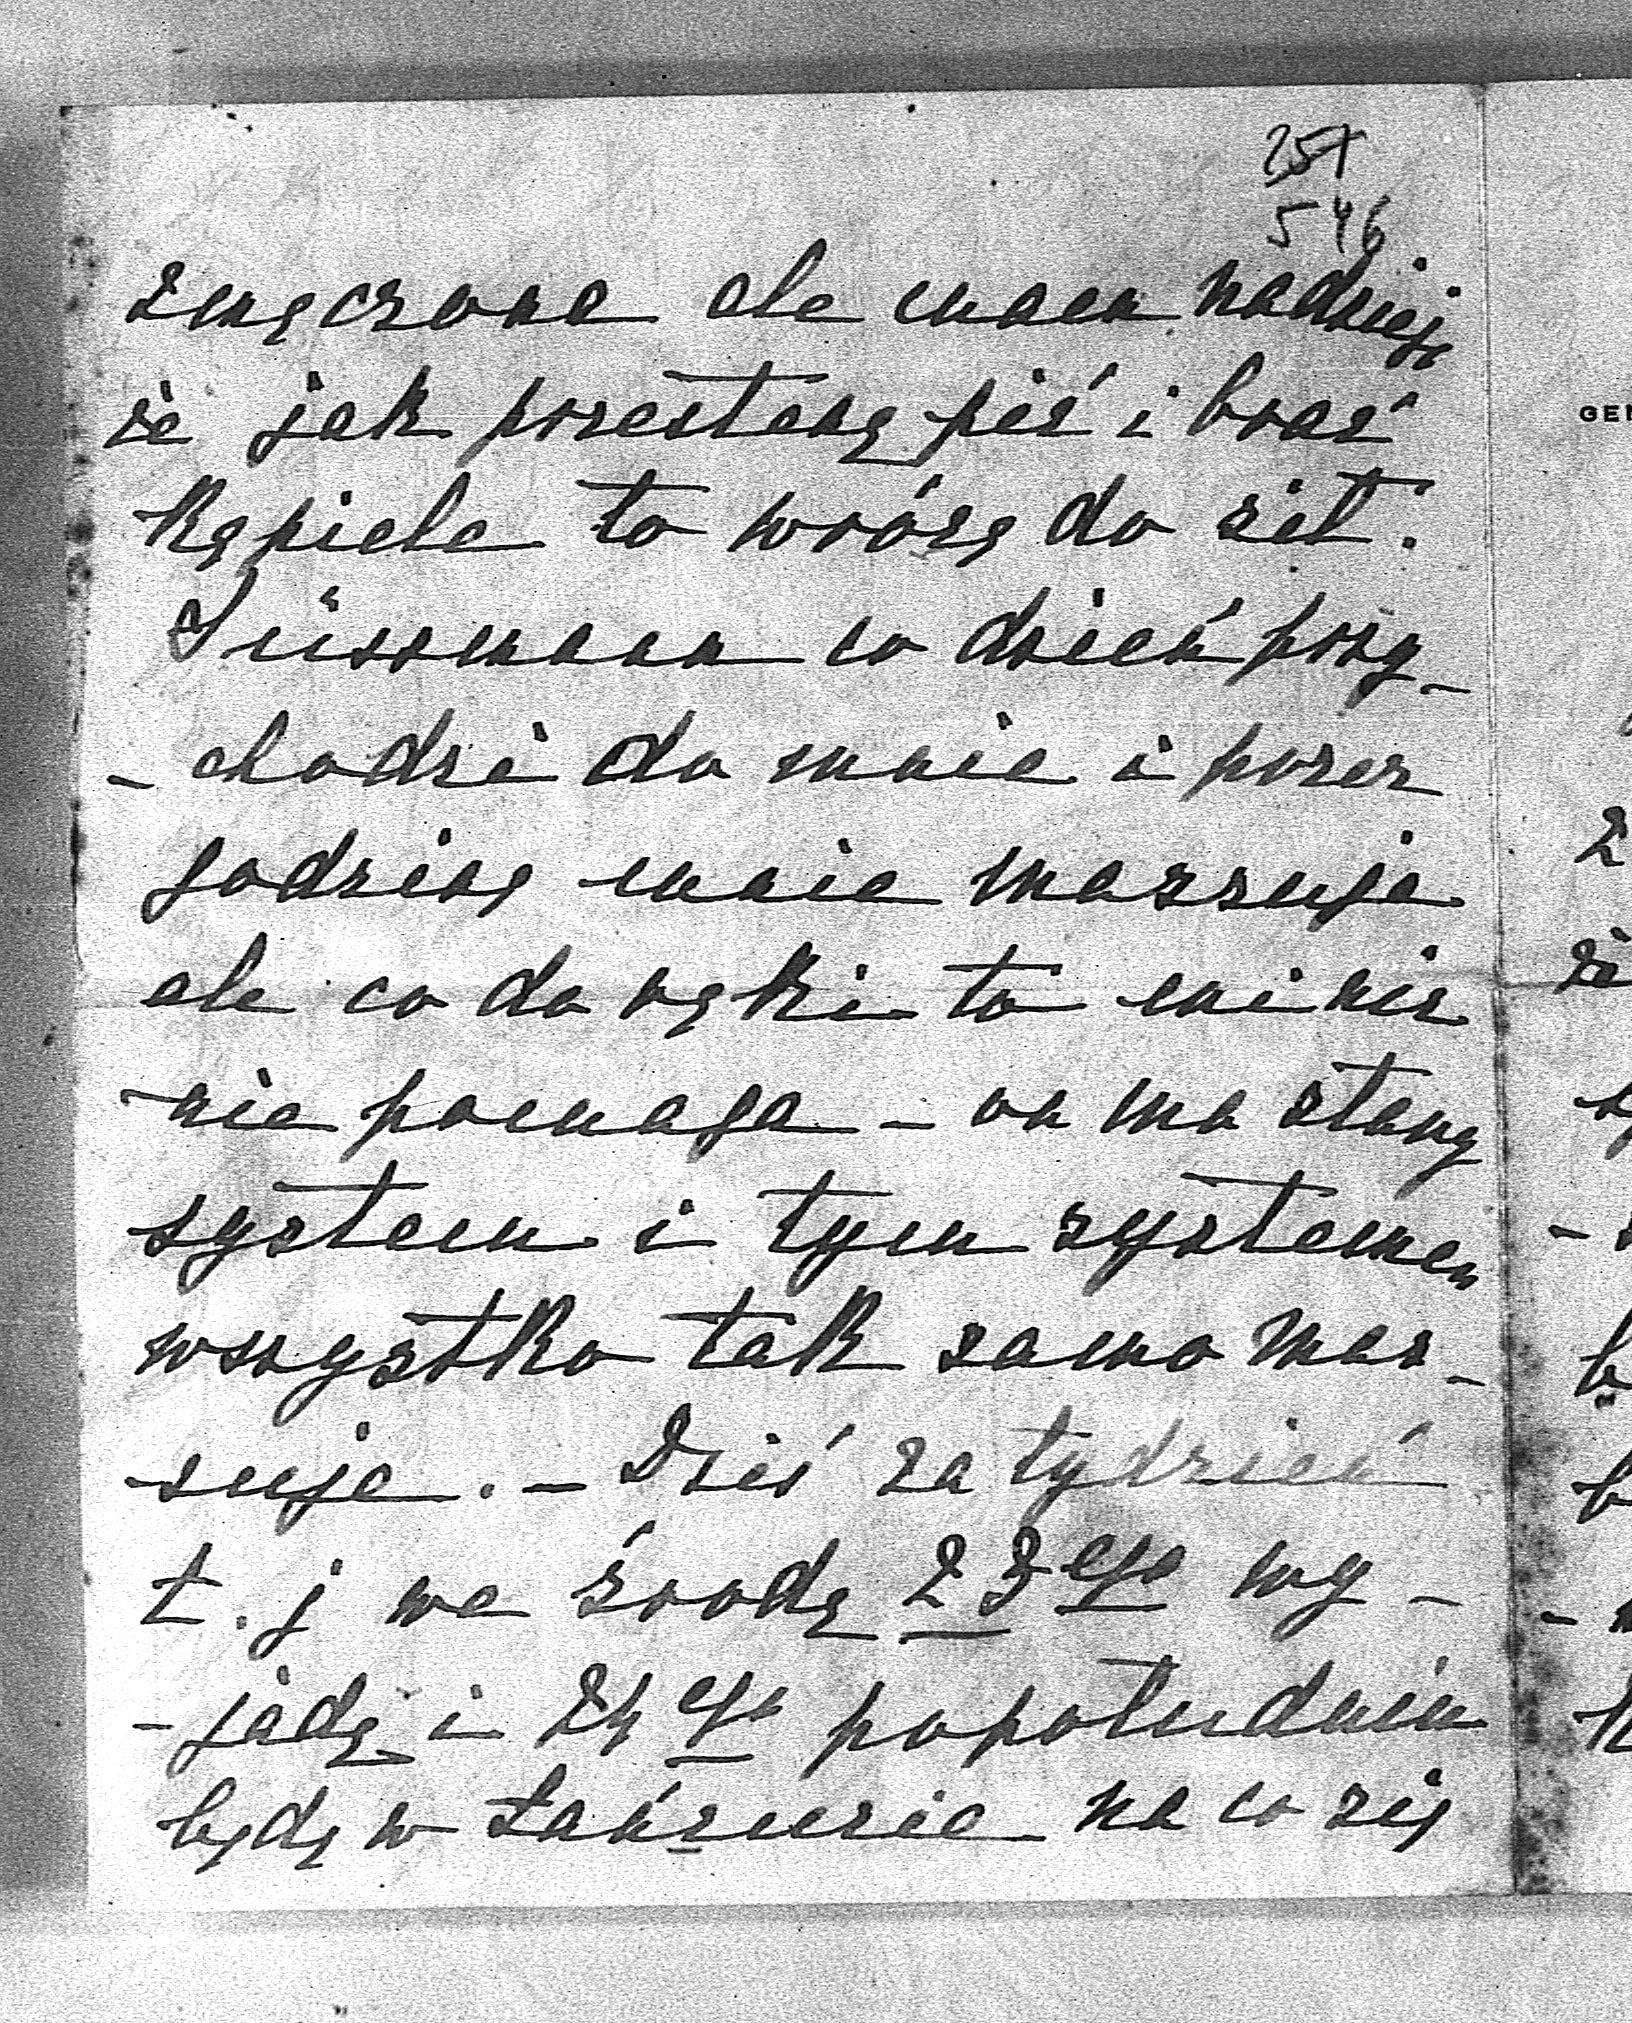 257
546
zmęczona ale mam nadzieję
że jak przestanę pić i brać
kąpiele to wrócę do sił.
Süssmann co dzień przy-
-chodzi do mnie i przez
godzinę mnie massuje
ale co do ręki to mi nic
-nie pomaga – on ma stary
system i tym systemem
wszystko tak samo mas-
-suje. – Dziś za tydzień
t. j we środę 23go wy-
-jadę i 24go popołudniu
będę w Łańcucie na co się
GEN
ż
b
b